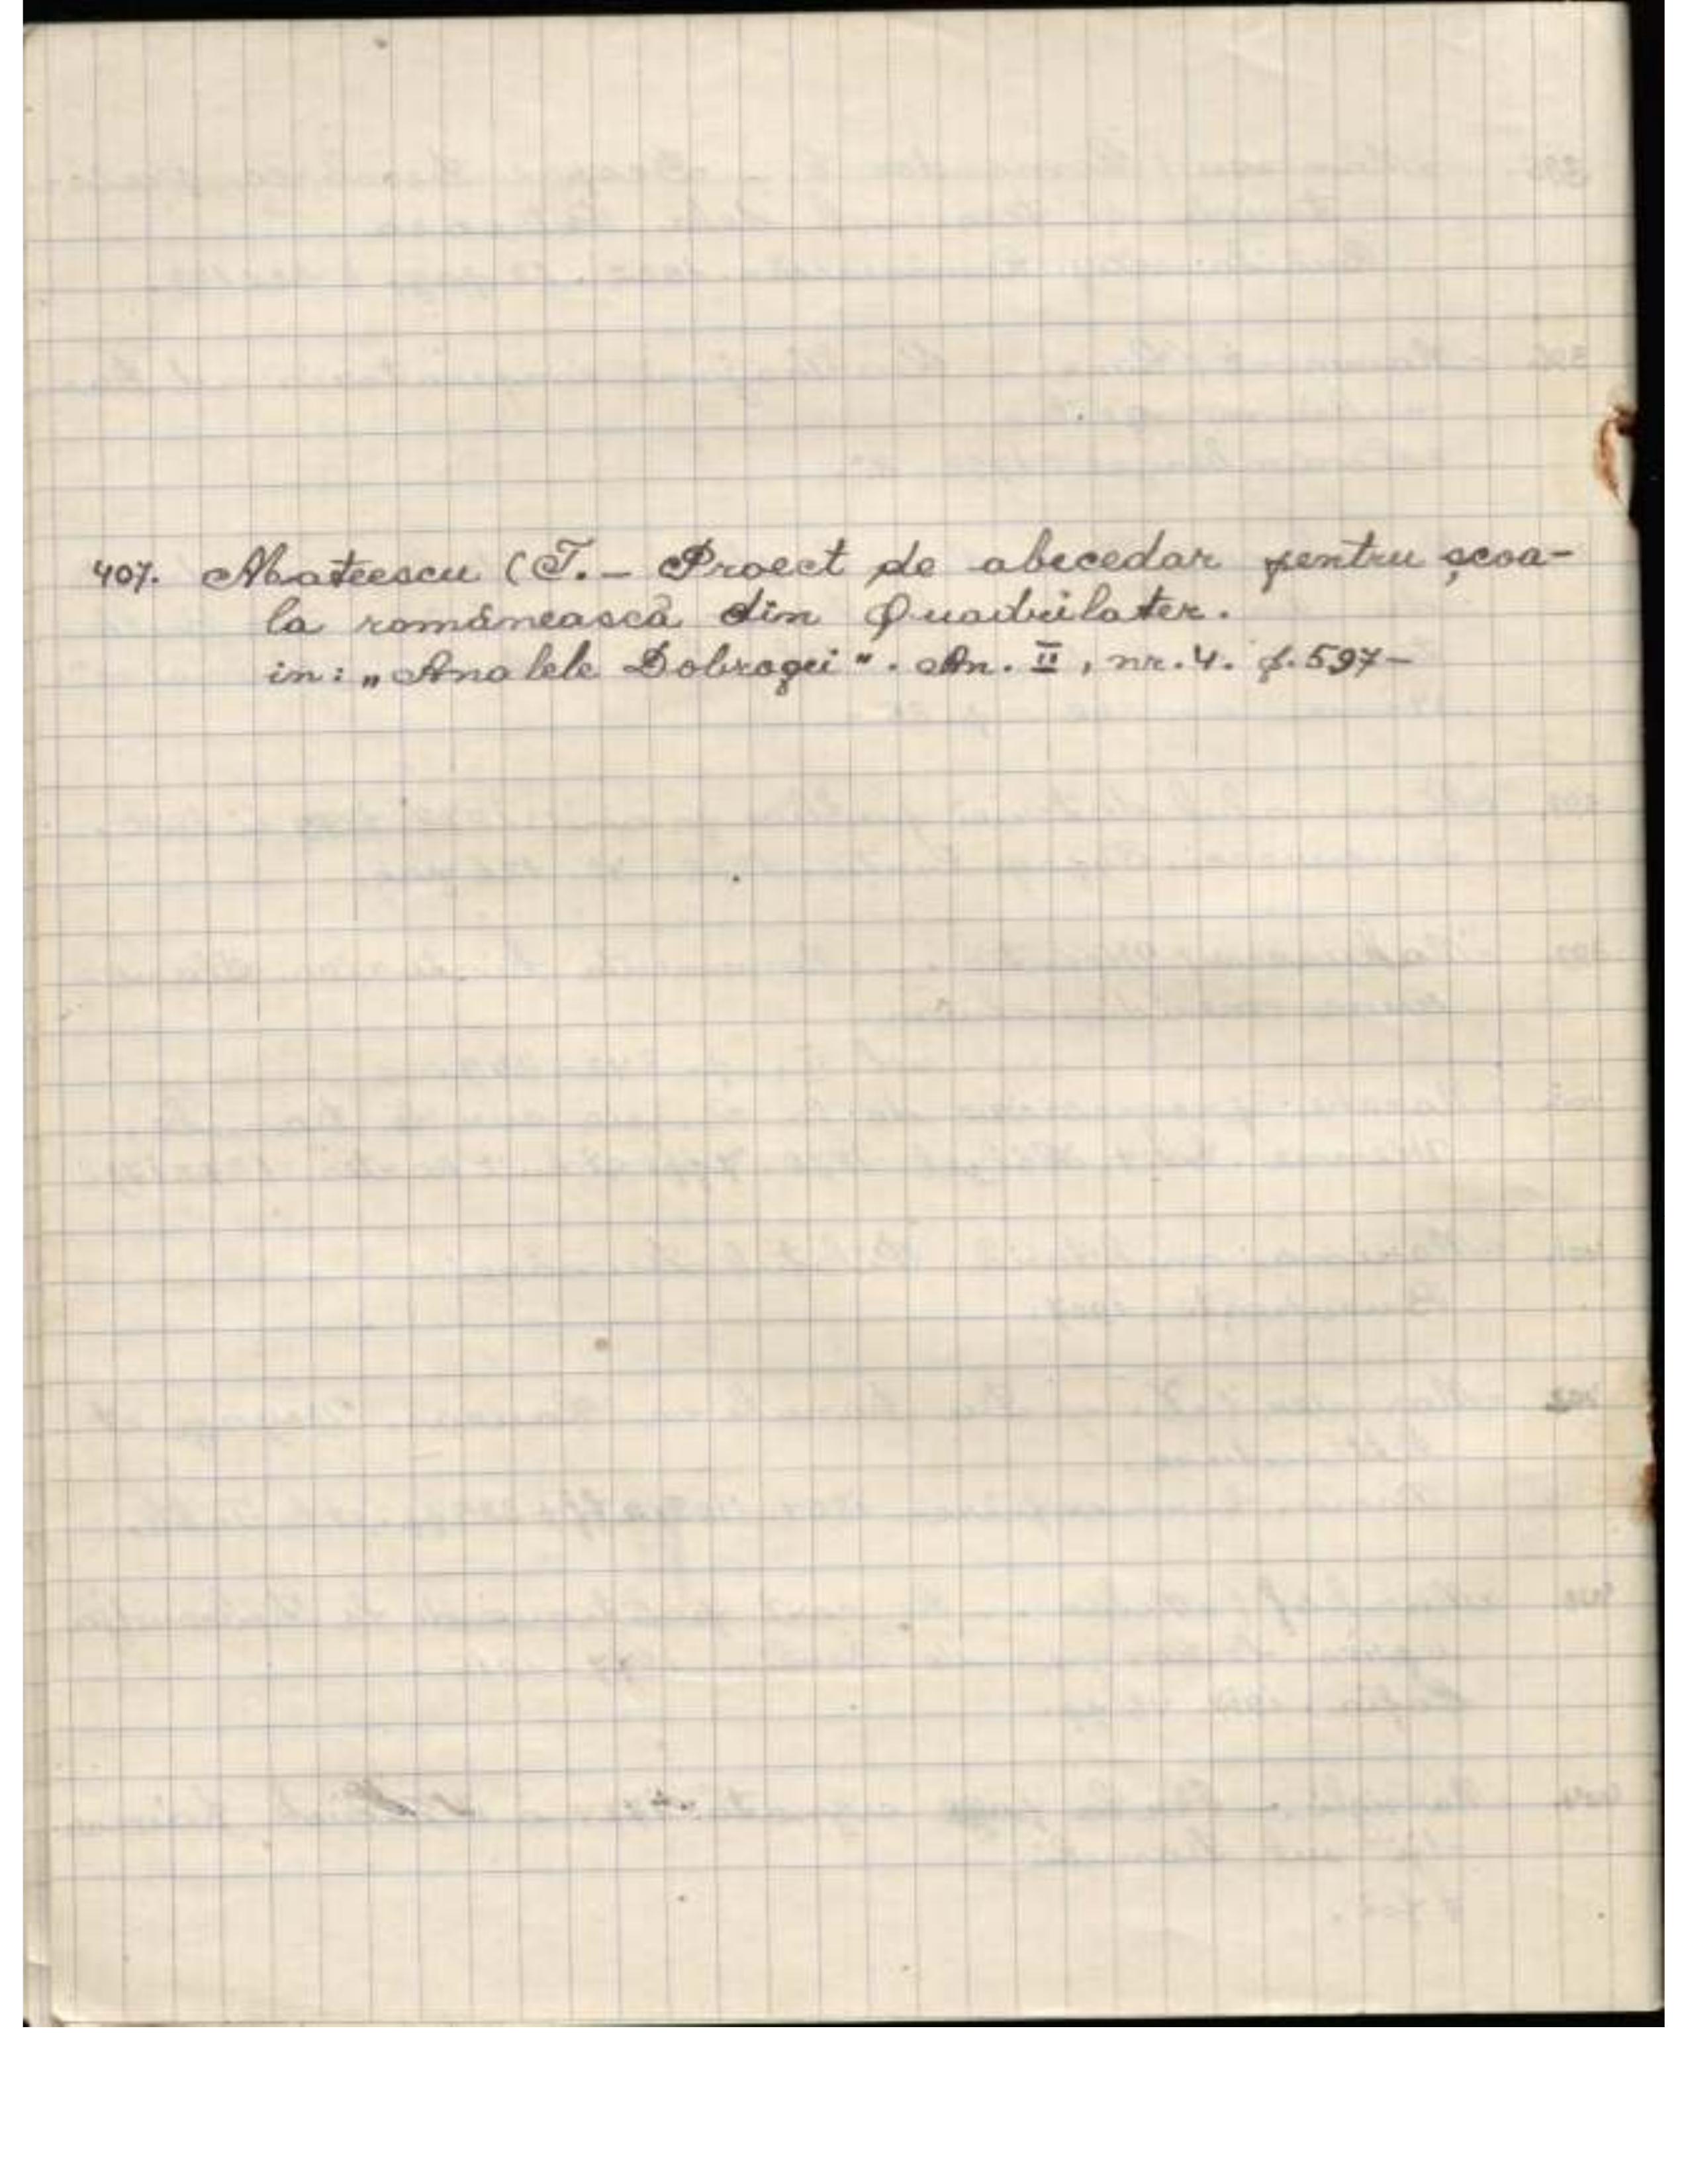 407. Mateescu (T. - Proect de abecedar pentru școa-
la românească din Quadrilater.
in: „Analele Dobrogei". An. II, nr. 4. p. 597-